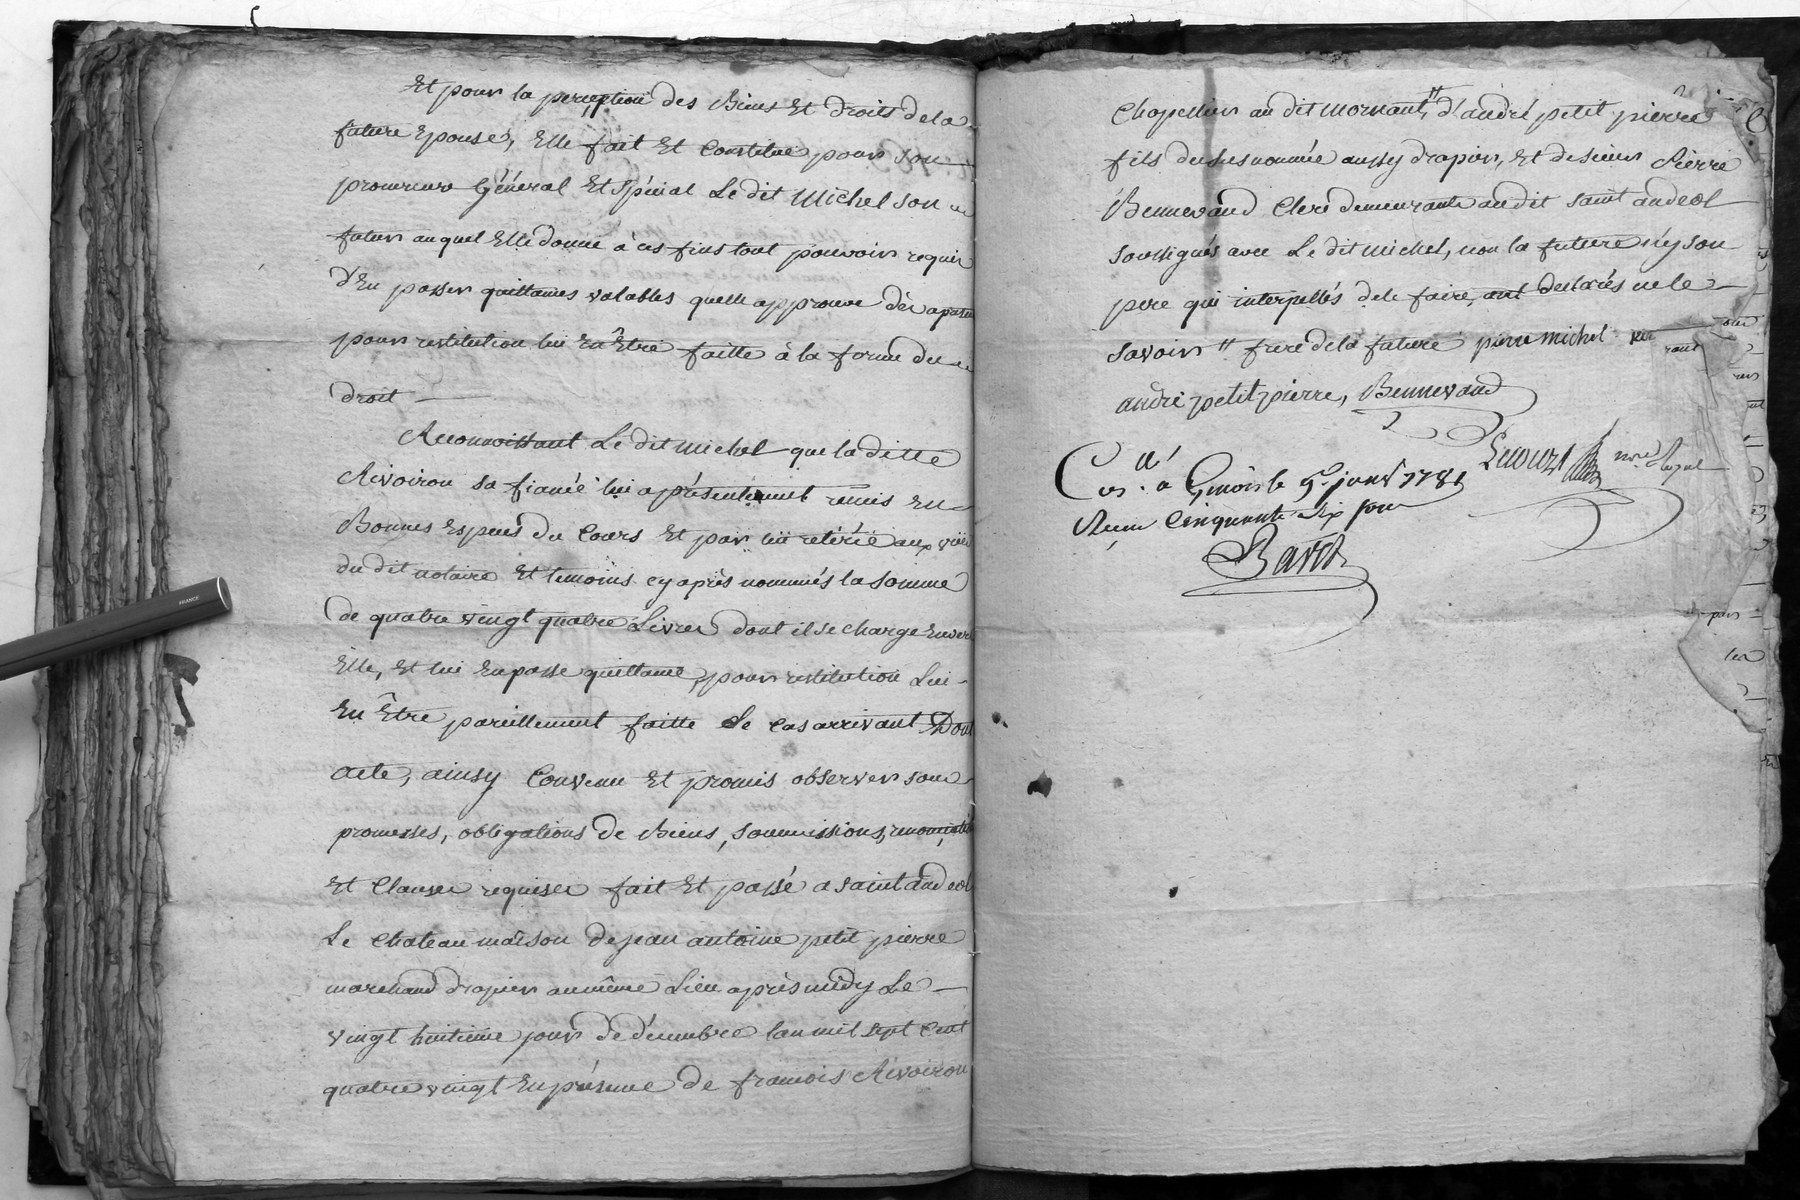 Et pour la perception des Biens Et Droits de la
future Epouse, Elle fait Et Constitue pour son
procureur Général Et Spécial Le dit Michel son
futur auquel Elle donne à ces fins tout pouvoir requis
d'En passer quittances valables quelle approuve dès apresent
pour restitution lui En Être faitte à la forme du
droit
Reconnoissant Le dit Michel que la ditte
Rivoiron sa fiancée lui a présentement remis En
Bonnes Espèces du Cours Et par lui retirée aux vües
du dit notaire Et temoins cy après nommés la somme
de quatre vingt quatre Livres dont il se charge Envers
Elle, Et lui En passe quittance, pour restitution Lui
En Être pareillement faitte Le Cas arrivant Dont
acte, ainsy Convenu Et promis observer sous
promesses, obligations de Biens, soumissions, renonciations
Et Clauses requises fait Et passé a saint andeol
Le Chateau maison de jean antoine petit pierre
marchand drapier au même Lieu après midy Le
vingt huitième jour de décembre l'an mil sept Cent
quatre vingt En présence de francois Rivoiron
Chapellier au dit mornant, d'andré petit pierre
fils du susnommée aussy drapier, Et de sieur Pierre
Bennevaud Clerc demeurants au dit saint andeol
soussignés avec Le dit michel, non la future n'y son
pere qui interpellés de le faire, ont declarés ne le
savoir frere de la future pierre michel
andré petit pierre, Bennevaud
nore Royal
FRANCE
Con. a Givors le 9. janvr 1781
Reçu Cinquante six sous